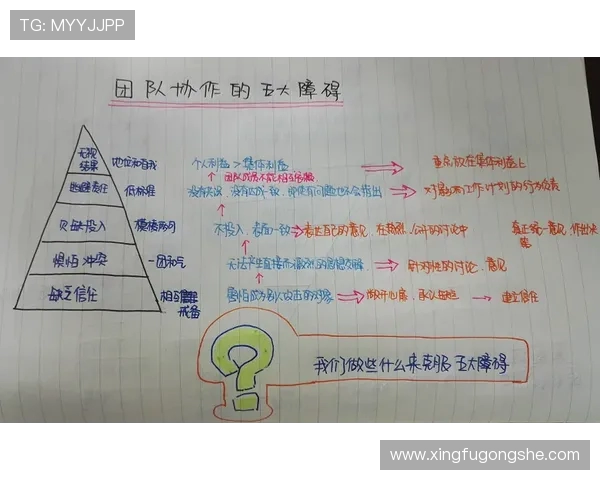 TG: MYYJJPP
团队协作的五大障碍
无视
结果
地位和自我
个人利益 > 集体利益
重点放在集体利益上
团队成员不能相互
逃避责任
低标准
没有达成一致，即使有问题也不会指出
对影响工作计划的行为负责
欠缺投入
模棱两可
不投入，表面一致
表达自己的意见，在热烈、公开的讨论中
真正统一意见，作出决定
惧怕冲突
一团和气
无法产生直接而激烈的思想交锋
针对性的讨论、意见
缺乏信任
相互
戒备
害怕成为别人攻击的对象
敞开心扉，承认缺点
建立信任
我们做些什么来克服五大障碍
www.xingfugongshe.com